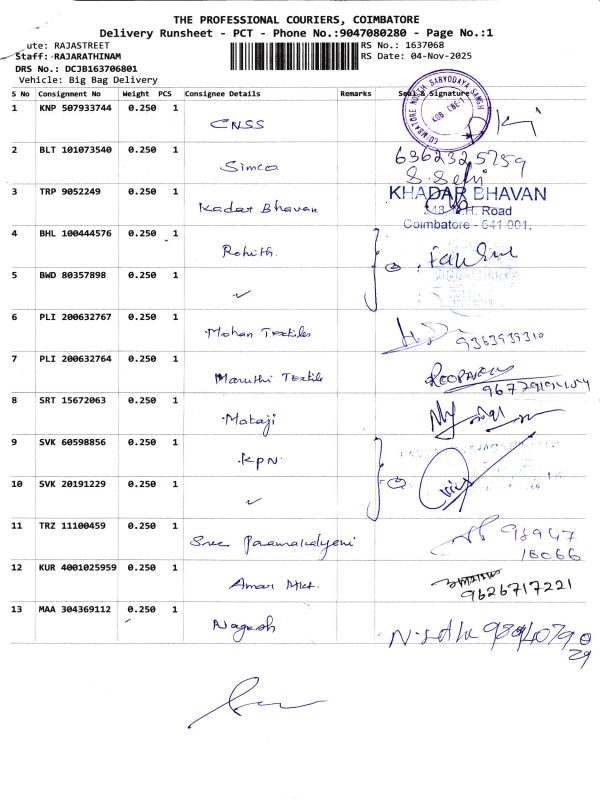 THE PROFESSIONAL COURIERS, COIMBATORE
Delivery Runsheet - PCT - Phone No.:9047080280 - Page No.:1
ute: RAJASTREET
RS No.: 1637068
Staff: RAJARATHINAM
RS Date: 04-Nov-2025
DRS No.: DCJB163706801
Vehicle: Big Bag Delivery
S No Consignment No Weight PCS Consignee Details Remarks Seal & Signature
1 KNP 507933744 0.250 1 CNSS
COIMBATORE NORTH SARVODAYA SANGH
2 BLT 101073540 0.250 1 Simco
6362325759
3 TRP 9052249 0.250 1 Kadar Bhavan
KHADAR BHAVAN
H. Road
Coimbatore - 641 001.
4 BHL 100444576 0.250 1 Rohith.
5 BWD 80357898 0.250 1 ✓
6 PLI 200632767 0.250 1 Mohan Textiles
9363939310
7 PLI 200632764 0.250 1 Maruthi Textile
8 SRT 15672063 0.250 1 Mataji
9 SVK 60598856 0.250 1 KPN
10 SVK 20191229 0.250 1 ✓
11 TRZ 11100459 0.250 1 Sree
98947
18066
12 KUR 4001025959 0.250 1 Amar Mkt.
9626717221
13 MAA 304369112 0.250 1 Nagesh
29